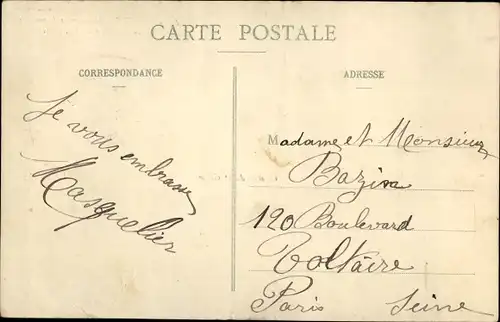 CARTE POSTALE
CORRESPONDANCE
Je vous embrasse
Masquelier
ADRESSE
Madame et Monsieur
Bazin
120 Boulevard
Voltaire
Paris Seine